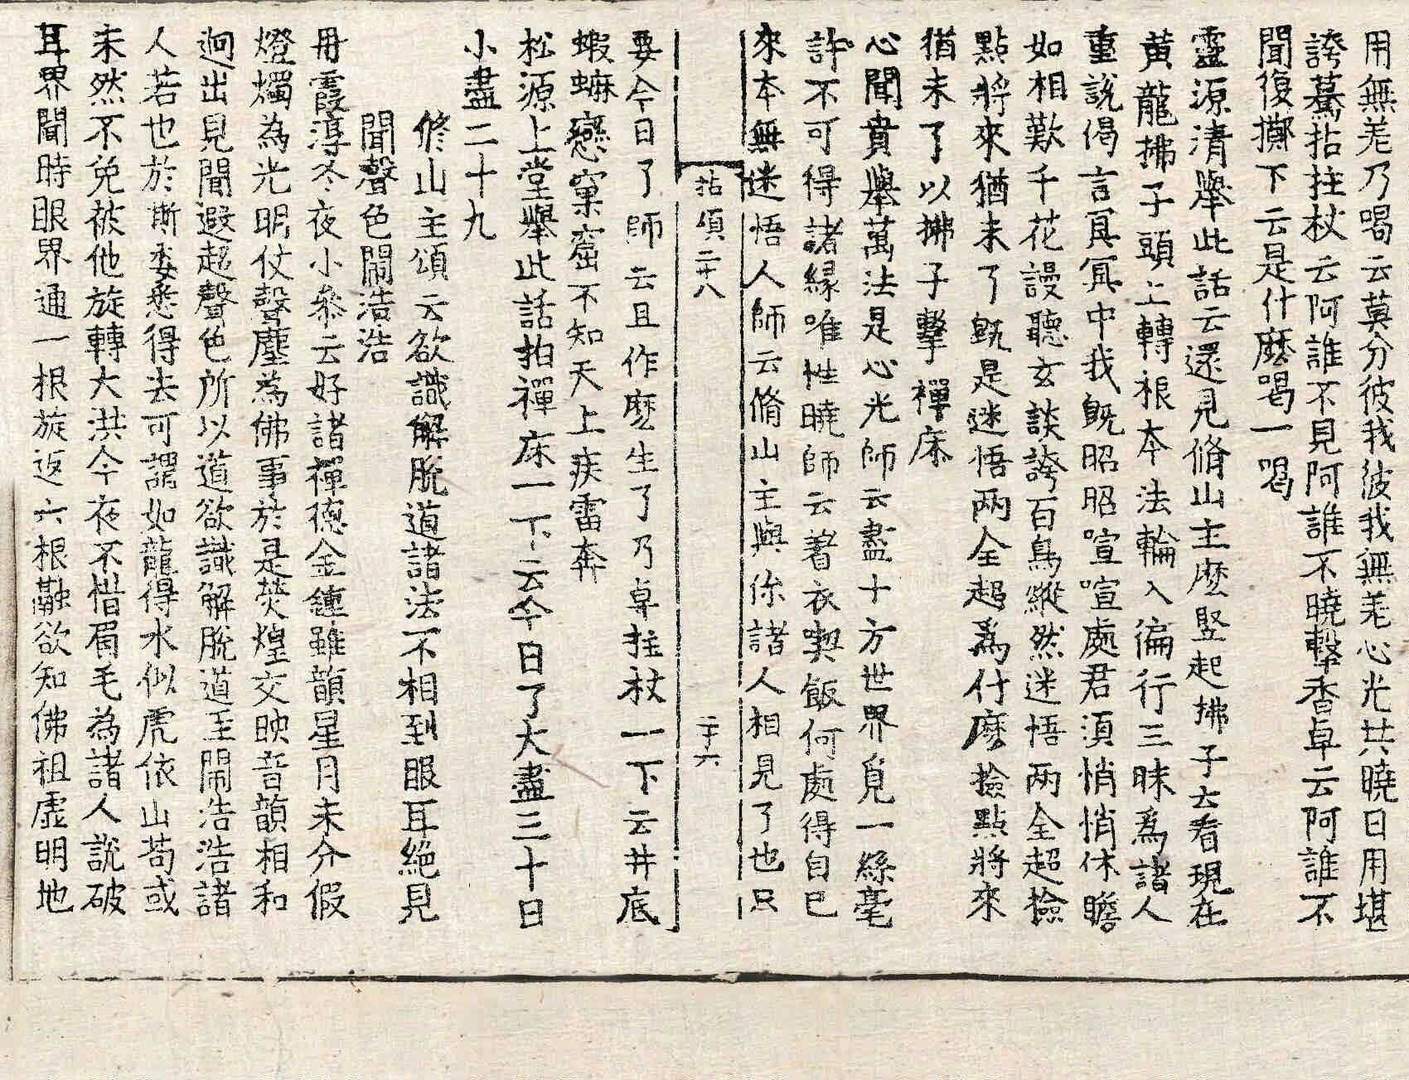 用無差乃喝云莫分彼我彼我無差心光共曉日用堪
誇驀拈拄杖云阿誰不見阿誰不曉擊香卓云阿誰不
聞復擲下云是什麽喝一喝
靈源清舉此話云還見脩山主麽竪起拂子云看現在
黃龍拂子頭上轉根本法輪入徧行三昧爲諸人
重說偈言冥冥中我旣昭昭喧喧處君須悄悄休瞻
如相歎千花謾聽玄談誇百鳥縱然迷悟两全超撿
點將來猶未了旣是迷悟两全超爲什麽撿點將來
猶未了以拂子擊禪床
心聞賁舉萬法是心光師云盡十方世界覓一絲毫
許不可得諸緣唯性曉師云著衣喫飯何處得自已
來本無迷悟人師云脩山主與你諸人相見了也只
拈頌二十八
二十六
要今日了師云且作麽生了乃卓拄杖一下云井底
蝦蟆戀窠窟不知天上疾雷奔
松源上堂舉此話拍禪床一下云今日了大盡三十日
小盡二十九
脩山主頌云欲識解脫道諸法不相到眼耳絕見
聞聲色鬧浩浩
丹霞淳冬夜小叅云好諸禪德金鍾雖韻星月未分假
燈燭為光明仗聲塵為佛事於是熒煌交映音韻相和
逈出見聞遐超聲色所以道欲識解脫道至鬧浩浩諸
人若也於斯委悉得去可謂如龍得水似虎依山苟或
未然不免被他旋轉大洪今夜不惜眉毛為諸人說破
耳界聞時眼界通一根旋返六根融欲知佛祖虛明地